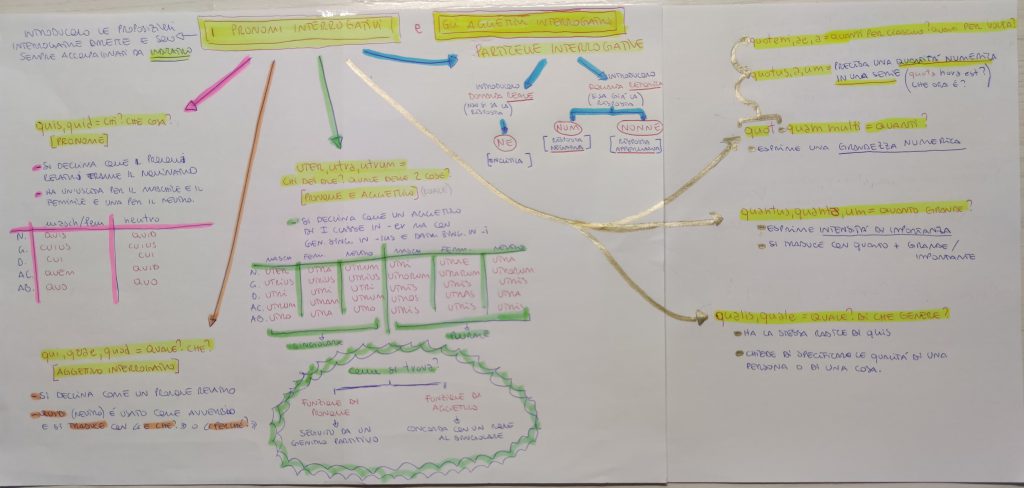 I PRONOMI INTERROGATIVI e GLI AGGETTIVI INTERROGATIVI
INTRODUCONO LE PROPOSIZIONI
INTERROGATIVE DIRETTE E SONO
SEMPRE ACCOMPAGNATI DA INDICATIVO
PARTICELLE INTERROGATIVE
INTRODUCONO
DOMANDA REALE
(NON SI SA LA
RISPOSTA)
NE
[ENCLITICA]
INTRODUCONO
DOMANDA RETORICA
(SI SA GIÀ LA
RISPOSTA)
NUM
[RISPOSTA
NEGATIVA]
NONNE
[RISPOSTA
AFFERMATIVA]
quis, quid = CHI? CHE COSA?
[PRONOME]
SI DECLINA COME IL PRONOME
RELATIVO TRANNE IL NOMINATIVO
HA UN'USCITA PER IL MASCHILE E IL
FEMMINILE E UNA PER IL NEUTRO.
masch/fem neutro
N. QUIS QUID
G. CUIUS CUIUS
D. CUI CUI
AC. QUEM QUID
AB. QUO QUO
qui, quae, quod = QUALE? CHE?
[AGGETTIVO INTERROGATIVO]
SI DECLINA COME UN PRONOME RELATIVO
QUID (NEUTRO) È USATO COME AVVERBIO
E SI TRADUCE CON << E CHE? >> O << PERCHÉ? >>
uter, utra, utrum =
CHI DEI DUE? QUALE DELLE 2 COSE?
[PRONOME E AGGETTIVO]
SI DECLINA COME UN AGGETTIVO
DI I CLASSE IN -er MA CON
GEN. SING. IN -ius E DAT. SING. IN -i
MASCH FEMM NEUTRO MASCH FEMM NEUTRO
N. UTER UTRA UTRUM UTRI UTRAE UTRA
G. UTRIUS UTRIUS UTRIUS UTRORUM UTRARUM UTRORUM
D. UTRI UTRI UTRI UTRIS UTRIS UTRIS
AC. UTRUM UTRAM UTRUM UTROS UTRAS UTRA
AB. UTRO UTRA UTRO UTRIS UTRIS UTRIS
SINGOLARE PLURALE
come si trova?
FUNZIONE DI
PRONOME
SEGUITO DA UN
GENITIVO PARTITIVO
FUNZIONE DI
AGGETTIVO
CONCORDA CON UN NOME
AL SINGOLARE
quotem, ae, a = QUANTI PER CIASCUNO? QUANTI PER VOLTA?
quotus, a, um = PRECISA UNA QUANTITÀ NUMERICA
IN UNA SERIE (quota hora est?
CHE ORA È?)
quot = quam multi = QUANTI?
ESPRIME UNA GRANDEZZA NUMERICA
quantus, quanta, um = QUANTO GRANDE?
ESPRIME INTENSITÀ DI IMPORTANZA
SI TRADUCE CON QUANTO + GRANDE/
IMPORTANTE
qualis, quale = QUALE? DI CHE GENERE?
HA LA STESSA RADICE DI QUIS
CHIEDE DI SPECIFICARE LE QUALITÀ DI UNA
PERSONA O DI UNA COSA.